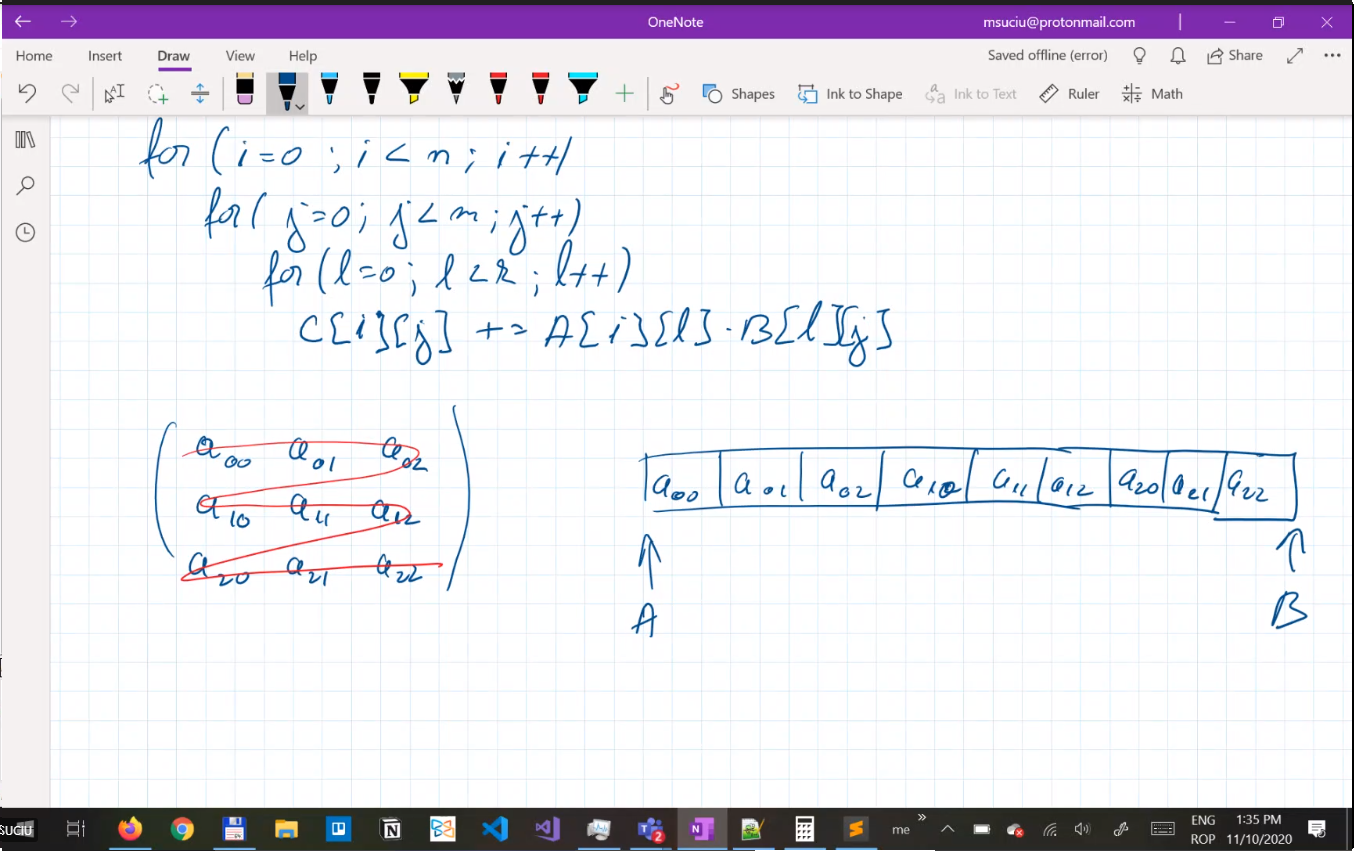 OneNote
msuciu@protonmail.com
Home Insert Draw View Help
Saved offline (error) Share
Shapes Ink to Shape Ink to Text Ruler Math
for (i=0 ; i < n ; i++)
for( j=0; j < m ; j++)
for (l=0; l < k ; l++)
C[i][j] += A[i][l] · B[l][j]
a00 a01 a02
a10 a11 a12
a20 a21 a22
a00 a01 a02 a10 a11 a12 a20 a21 a22
A B
SUCIU
me
ENG 1:35 PM
ROP 11/10/2020
2